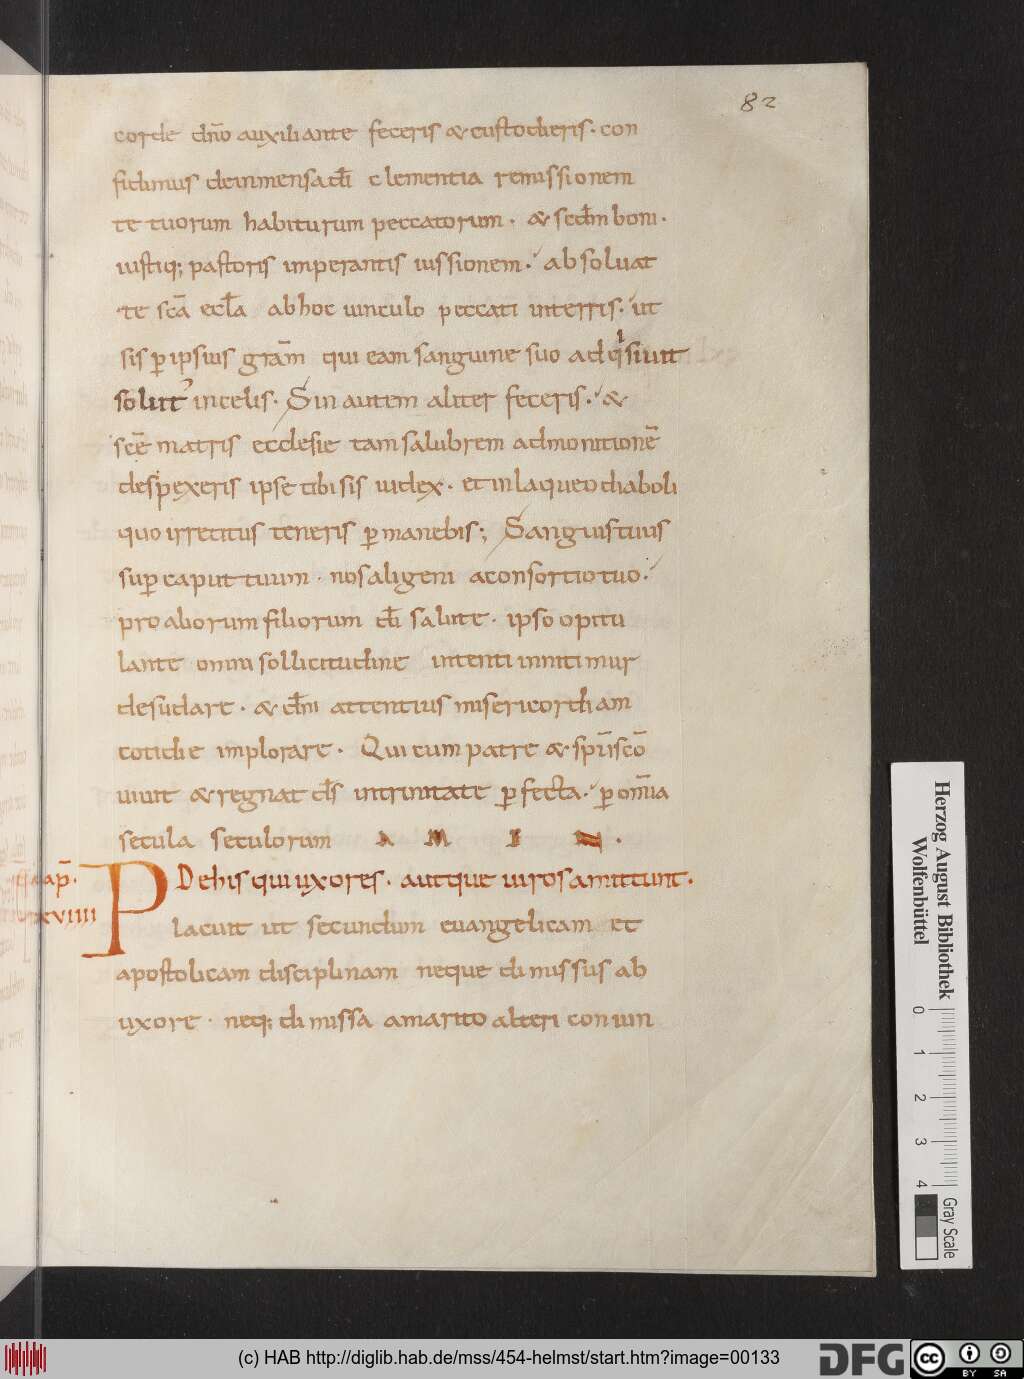 82
corde dn̄o auxiliante feceris & custodieris. con
fidimus deinmensa dī clementia remissionem
te tuorum habiturum peccatorum. & secdm boni.
iustiq; pastoris imperantis iussionem. absoluat
te scā eccła abhoc uinculo peccati interris. ut
sis p̄ ipsius grām qui eam sanguine suo adqisiuit
soluit' incelis. Sin autem aliter feceris. &
scē matris ecclesie tam salubrem admonitionē
despexeris ipse tibi sis iudex. et inlaqueo diaboli
quo irretitus teneris p̄manebis; Sanguis tuus
sup̄ caput tuum. nos aligeni aconsortio tuo.
pro aliorum filiorum dī salute. ipso opitu
lante omni sollicitudine intenti innitimur
desudare. & dm̄ attentius misericordiam
cotidie implorare. Qui cum patre & spū scō
uiuit & regnat ds̄ intrinitate p̄fecta. p̄ omīa
secula seculorum A M E N.
ap̄.
xviiii
De his qui uxores. autque uiros amittunt.
Placuit ut secundum euangelicam et
apostolicam disciplinam neque dimissus ab
uxore. neq; dimissa amarito alteri coniun
Herzog August Bibliothek
Wolfenbüttel
0 1 2 3 4
Gray Scale
(c) HAB http://diglib.hab.de/mss/454-helmst/start.htm?image=00133
DFG
cc
BY SA